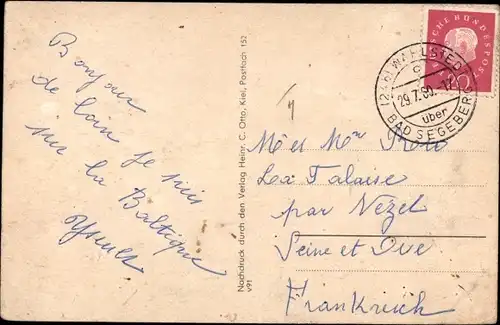 Bonjour
de loin Je suis
sur la Baltique
Yseult
Nachdruck durch den Verlag Heinr. C. Otto, Kiel, Postfach 152
v91
DEUTSCHE BUNDESPOST
20
WAHLSTEDT
c
29.7.60.-12
über
BAD SEGEBERG
M et Mme
La Falaise
par Nezel
Seine et Oise
Frankreich